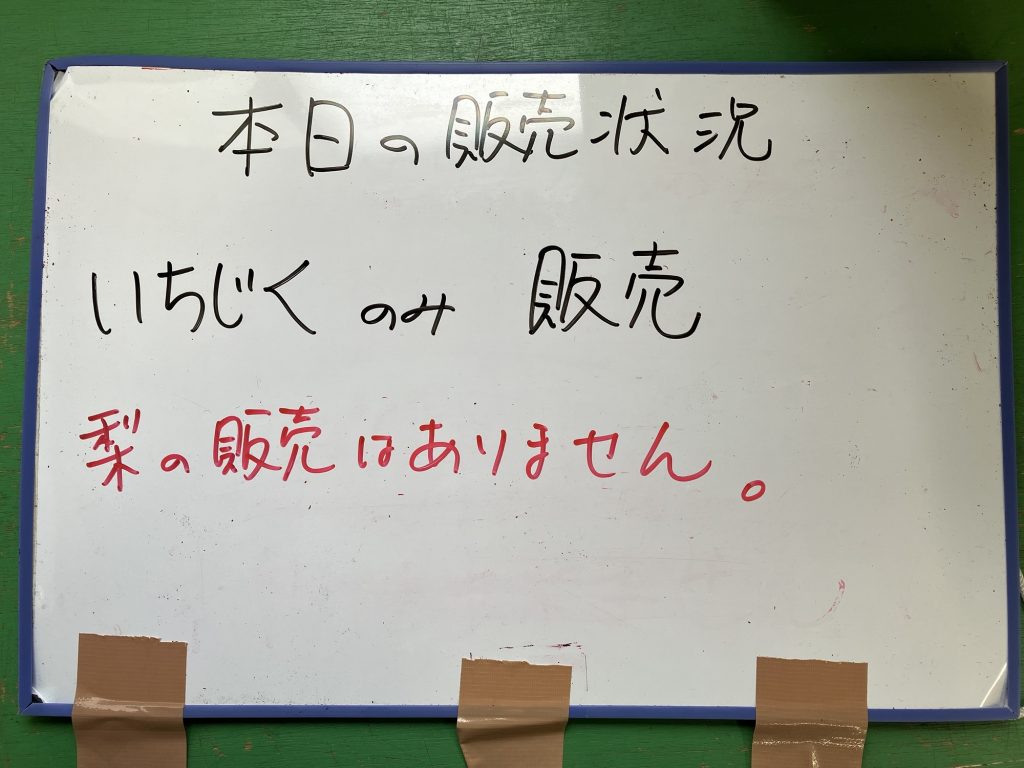 本日の販売状況
いちじくのみ 販売
梨の販売はありません。